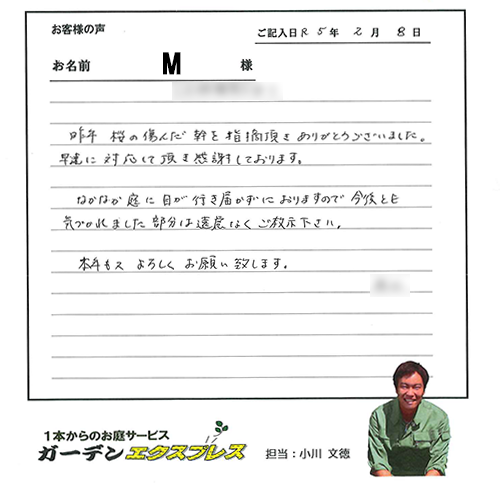 お客様の声
ご記入日 R5年2月8日
お名前 M 様
昨年 桜の傷んだ幹を指摘頂き ありがとうございました。
早速に対応して頂き感謝しております。
なかなか庭に目が行き届かずにおりますので 今後とも
気づかれました部分は遠慮なくご教示下さい。
本年も又 よろしくお願い致します。
1本からのお庭サービス
ガーデンエクスプレス
担当:小川 文徳